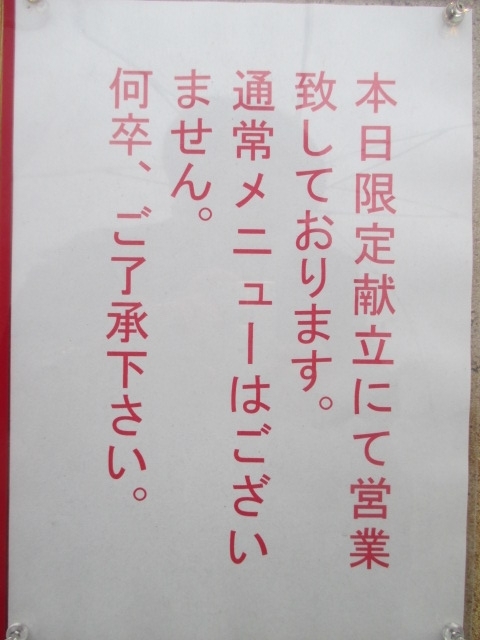 本日限定献立にて営業
致しております。
通常メニューはござい
ません。
何卒、ご了承下さい。